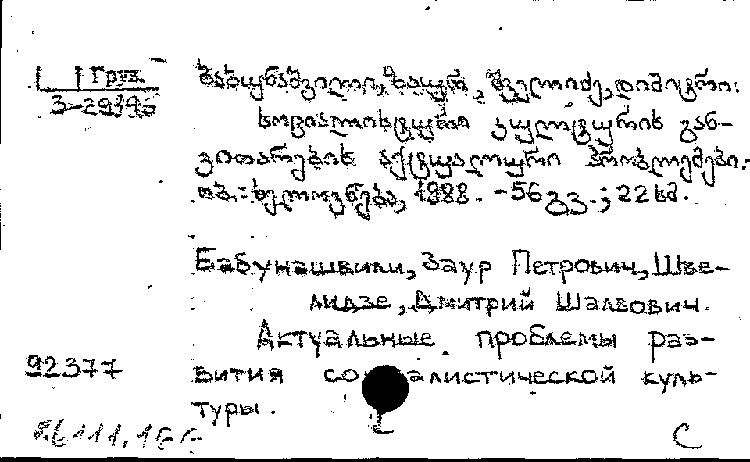 Груз.
3-29196
ბაბუნაშვილი, ზაურ, შველიძე, დიმიტრი.
სოციალისტური კულტურის გან-
ვითარების აქტუალური პრობლემები.-
თბ.: ხელოვნება, 1988. -56 გვ.; 22 სმ.
Бабунашвили, Заур Петрович, Шве-
лидзе, Дмитрий Шалвович.
Актуальные проблемы раз-
вития социалистической куль-
туры.
92377
С